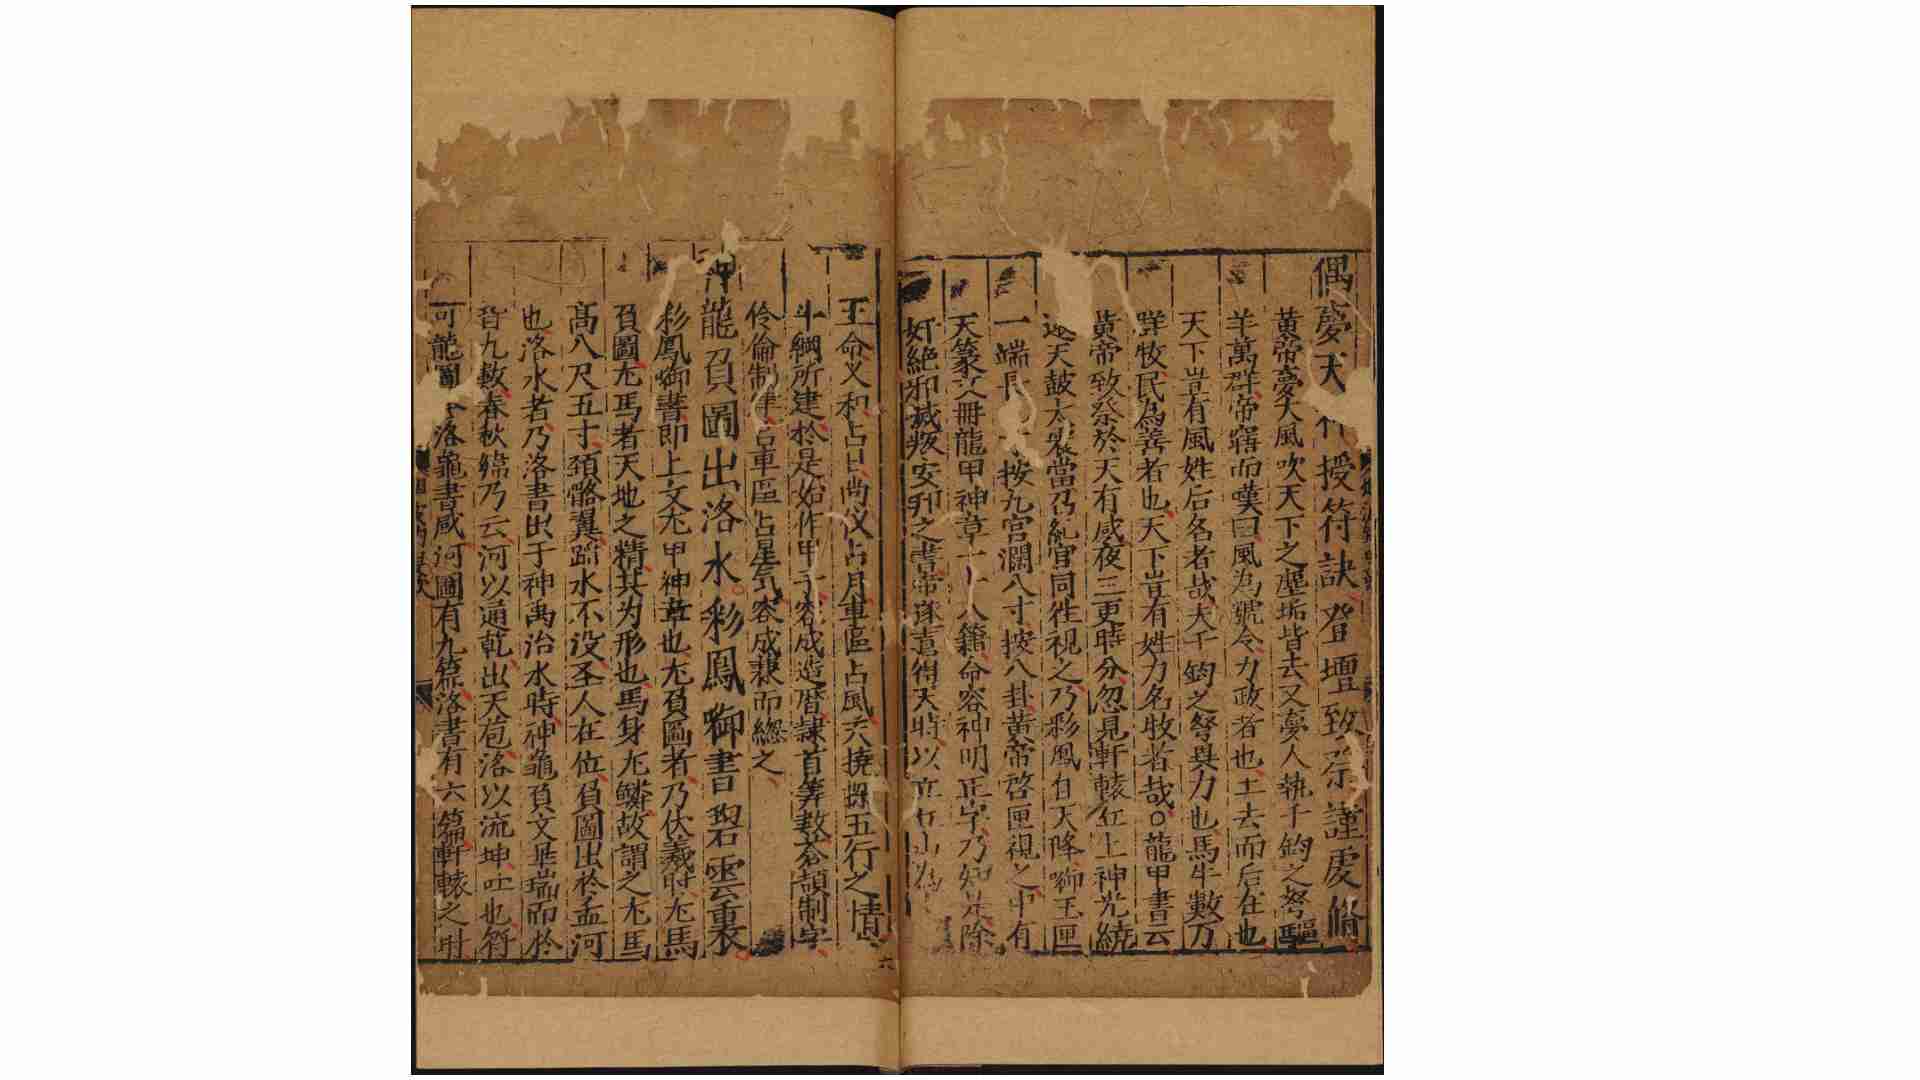 偶夢天神授符訣登壇致祭謹虔修
黃帝夢大風吹天下之塵垢皆去又夢人執千鈞之弩驅
羊萬群帝寤而嘆曰風為號令力政者也土去而后在也
天下豈有風姓后名者哉夫千鈞之弩異力也馬牛數万
群牧民為善者也天下豈有姓力名牧者哉○龍甲書云
黃帝致祭於天有感夜三更時分忽見軒轅丘上神光繞
天鼓太 當乃 官同徃視之乃彩鳳自天降啣玉匣
一端長 按九宫濶八寸按八卦黃帝啓匣視之中有
天篆文冊龍甲神章一十八篇命容神明正字乃知是除
奸絶邪滅叛安邦之書帝遂 得天時以立
王命义和占日尚仪占月車區占風大撓探五行之情
斗綱所建於是始作甲子容成造暦隷首筭數蒼頡制字
伶倫制律 車區占星気容成兼而總之
河龍負圖出洛水彩鳳啣書碧雲裏
彩鳳啣書即上文尤甲神章也尤負啚者乃伏羲时尤馬
負圖尤馬者天地之精其为形也馬身尤鱗故謂之尤馬
髙八尺五寸頚骼翼蹈水不没圣人在位負圖出於孟河
也洛水者乃洛書出于神禹治水時神龜負文呈瑞而於
背九數春秋緯乃云河以通乾出天苞洛以流坤吐也符
可龍圖 洛龜書感河圖有九篇洛書有六篇軒轅之时
六